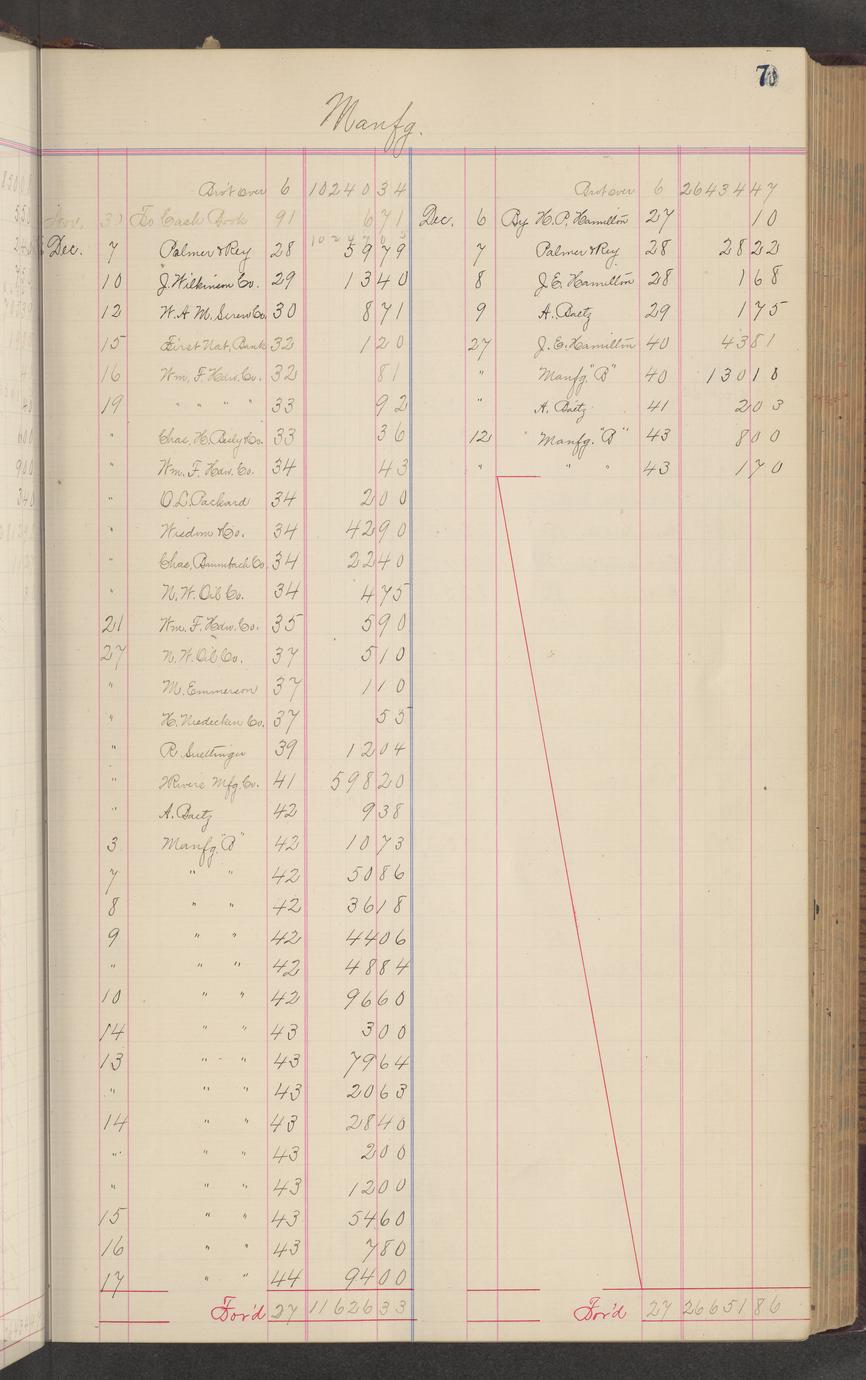 70
Manfg.
Bro't over 6 10240 34
Nov. 30 To Cash Book 91 6 71
Dec. 7 Palmer & Rey 28 59 79
10 J. Wilkinson Co. 29 13 40
12 W. A. M. Screw Co. 30 8 71
15 First Nat. Bank 32 1 20
16 Wm. F. Hdw. Co. 32 81
19 " " " " 33 92
" Chas. H. Besly & Co. 33 36
" Wm. F. Hdw. Co. 34 43
" O. L. Packard 34 2 00
" Wisdom & Co. 34 42 90
" Chas. Baumbach Co. 34 22 40
" N. W. Oil Co. 34 4 75
21 Wm. F. Hdw. Co. 35 5 90
27 N. W. Oil Co. 37 5 10
" M. Emmerson 37 1 10
" H. Niedecken Co. 37 55
" R. Suettinger 39 12 04
" 2 Rivers Mfg. Co. 41 598 20
" A. Baetz 42 9 38
3 Manfg. "B" 42 10 73
7 " " 42 50 86
8 " " 42 36 18
9 " " 42 44 06
" " " 42 48 84
10 " " 42 96 60
14 " " 43 3 00
13 " " 43 79 64
" " " 43 20 63
14 " " 43 28 40
" " " 43 2 00
" " " 43 12 00
15 " " 43 54 60
16 " " 43 7 80
17 " " 44 94 00
For'd 27 11626 33
Bro't over 6 26434 47
Dec. 6 By H. P. Hamilton 27 10
7 Palmer & Rey 28 28 22
8 J. E. Hamilton 28 1 68
9 A. Baetz 29 1 75
27 J. E. Hamilton 40 43 81
" Manfg. "B" 40 130 18
" A. Baetz 41 2 03
12 Manfg. "B" 43 8 00
" " " 43 1 70
For'd 27 26651 86